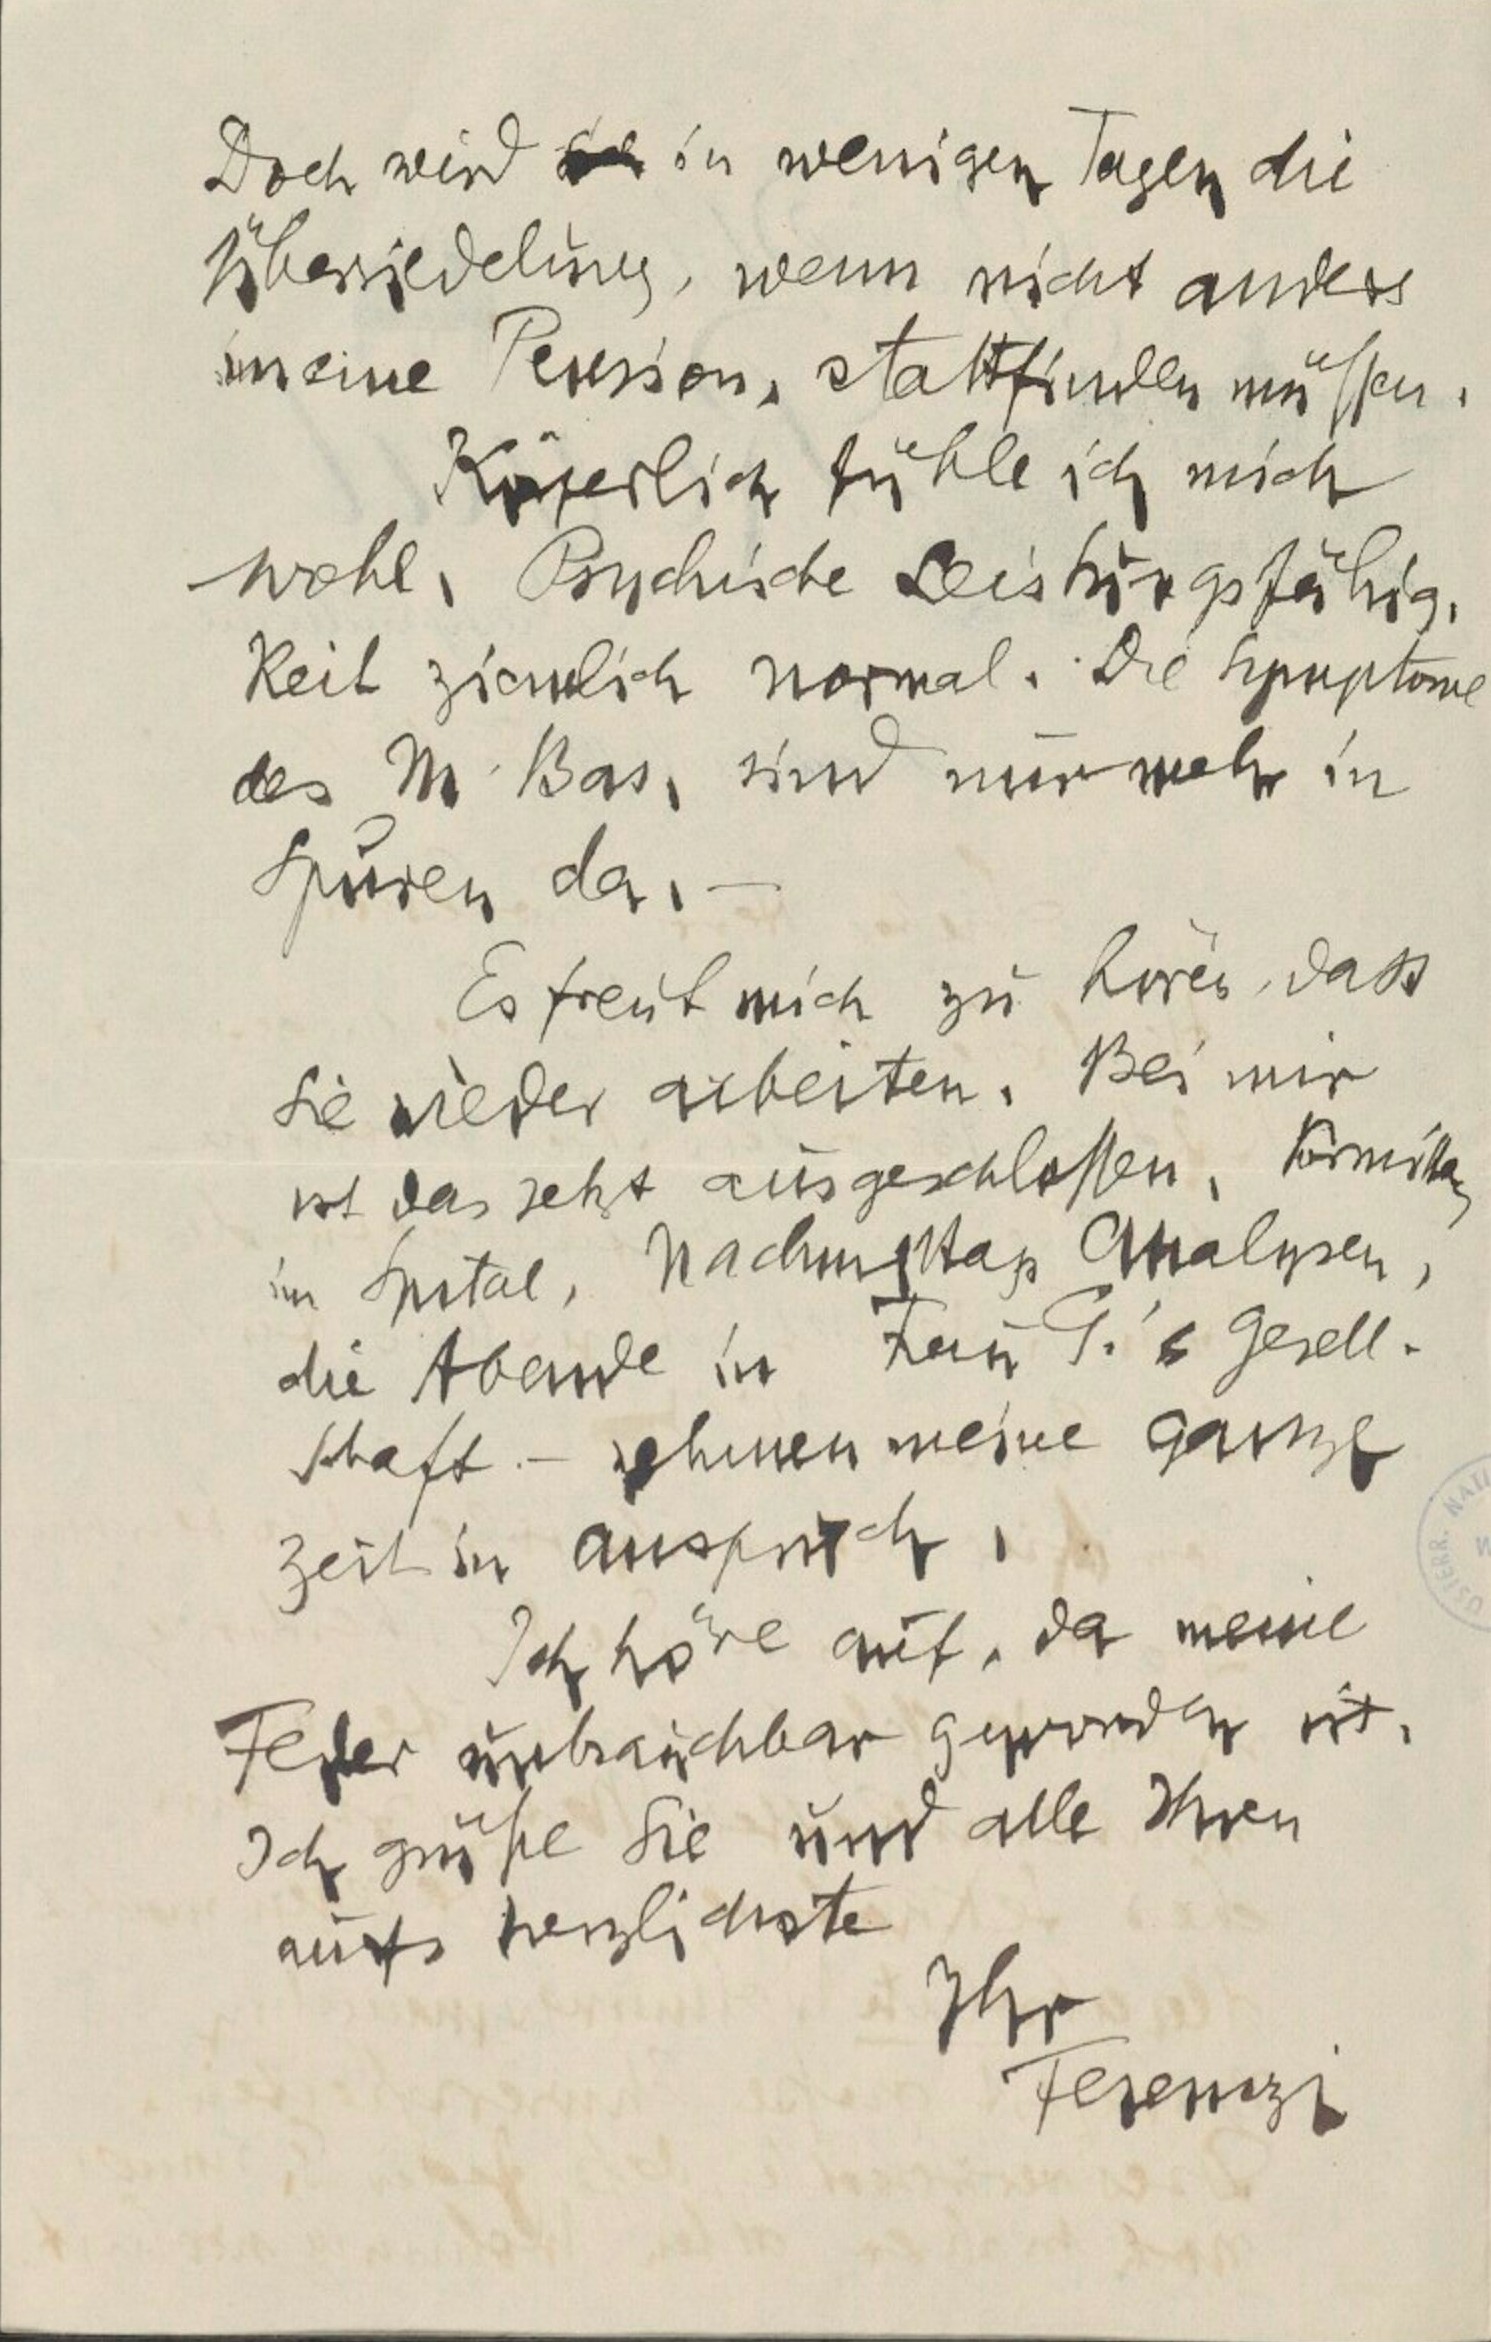 Doch wird in wenigen Tagen die
Übersiedelung, wenn nicht anders
in eine Pension, stattfinden müssen.
Körperlich fühle ich mich
wohl, Psychische Leistungsfähig-
keit ziemlich normal. Die Symptome
des M. Bas. sind nur mehr in
Spuren da. –
Es freut mich zu hören, dass
Sie wieder arbeiten. Bei mir
ist das jetzt ausgeschlossen. Vormittag
im Spital, Nachmittags Analysen,
die Abende in Frau G.'s Gesell-
schaft. – nehmen meine ganze
Zeit in Anspruch.
Ich höre auf, da meine
Feder unbrauchbar geworden ist.
Ich grüße Sie und alle Ihren
aufs herzlichste
Ihr
Ferenczi
ÖSTERR. NATI